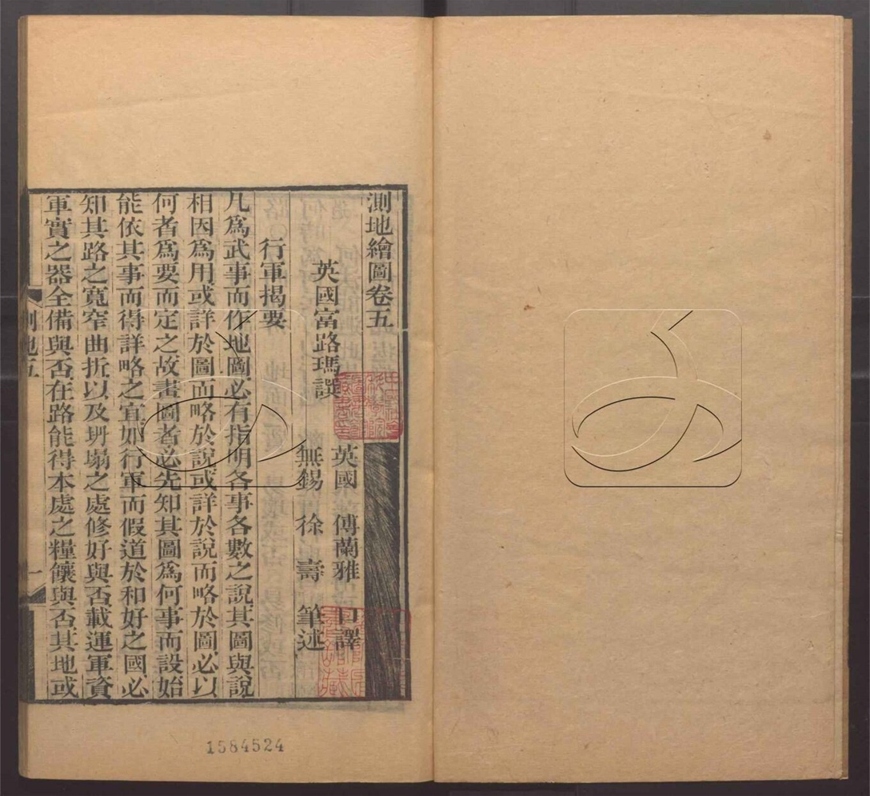 測地繪圖卷五
英國富路瑪譔
英國　傅蘭雅　口譯
無錫　徐　壽　筆述
行軍揭要
凡爲武事而作地圖必有指明各事各數之說其圖與說
相因爲用或詳於圖而略於說或詳於說而略於圖必以
何者爲要而定之故畫圖者必先知其圖爲何事而設始
能依其事而得詳略之宜如行軍而假道於和好之國必
知其路之寬窄曲折以及坍塌之處修好與否載運軍資
軍實之器全備與否在路能得本處之糧饟與否其地或
測地五
一
1584524